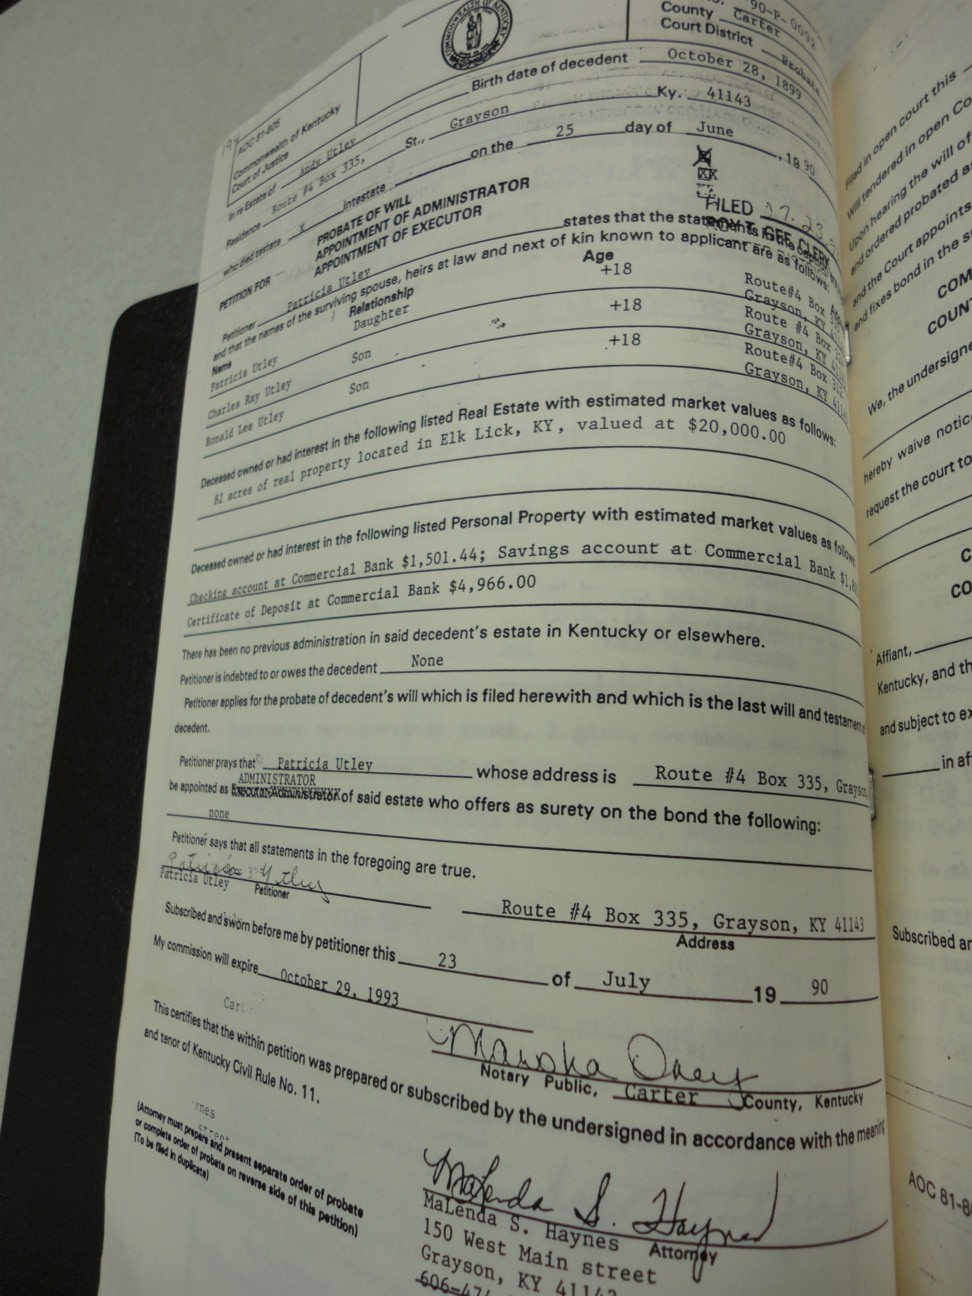 90-P-009
County Carter
Court District Probate
COMMONWEALTH OF KENTUCKY
AOC 81-805
Commonwealth of Kentucky
Court of Justice
Birth date of decedent October 28, 1899
In re Estate of Andy Utley
Residence Route #4 Box 335, St., Grayson Ky. 41143
who died testate x intestate on the 25 day of June , 19 90
PETITION FOR
PROBATE OF WILL
APPOINTMENT OF ADMINISTRATOR XX
APPOINTMENT OF EXECUTOR
FILED 7-23
ROY T. GEE, CLERK
Petitioner Patricia Utley states that the statements
and that the names of the surviving spouse, heirs at law and next of kin known to applicant are as follows:
Name Relationship Age
Patricia Utley Daughter +18 Route#4 Box
Grayson, KY
Charles Ray Utley Son +18 Route #4 Box
Grayson, KY
Ronald Lee Utley Son +18 Route#4 Box
Grayson, KY
Deceased owned or had interest in the following listed Real Estate with estimated market values as follows:
82 acres of real property located in Elk Lick, KY, valued at $20,000.00
Deceased owned or had interest in the following listed Personal Property with estimated market values as follows
Checking account at Commercial Bank $1,501.44; Savings account at Commercial Bank
Certificate of Deposit at Commercial Bank $4,966.00
There has been no previous administration in said decedent's estate in Kentucky or elsewhere.
Petitioner is indebted to or owes the decedent None
Petitioner applies for the probate of decedent's will which is filed herewith and which is the last will and testament
decedent.
Petitioner prays that Patricia Utley whose address is Route #4 Box 335, Grayson
ADMINISTRATOR
be appointed as of said estate who offers as surety on the bond the following:
none
Petitioner says that all statements in the foregoing are true.
Patricia Utley
Patricia Utley Petitioner
Route #4 Box 335, Grayson, KY 41143
Address
Subscribed and sworn before me by petitioner this 23 of July 19 90
My commission will expire October 29, 1993
Notary Public, Carter County, Kentucky
This certifies that the within petition was prepared or subscribed by the undersigned in accordance with the meaning
and tenor of Kentucky Civil Rule No. 11.
MaLenda S. Haynes
MaLenda S. Haynes Attorney
150 West Main street
Grayson, KY 41143
606-474
(Attorney must prepare and present separate order of probate
or complete order of probate on reverse side of this petition)
(To be filed in duplicate)
Filed in open court this
Will tendered in open Co
Upon hearing the will of
and ordered probated as
and the Court appoints
and fixes bond in the s
COM
COUN
We, the undersigne
hereby waive notic
request the court to
C
CO
Affiant,
Kentucky, and th
and subject to ex
in af
Subscribed an
AOC 81-8